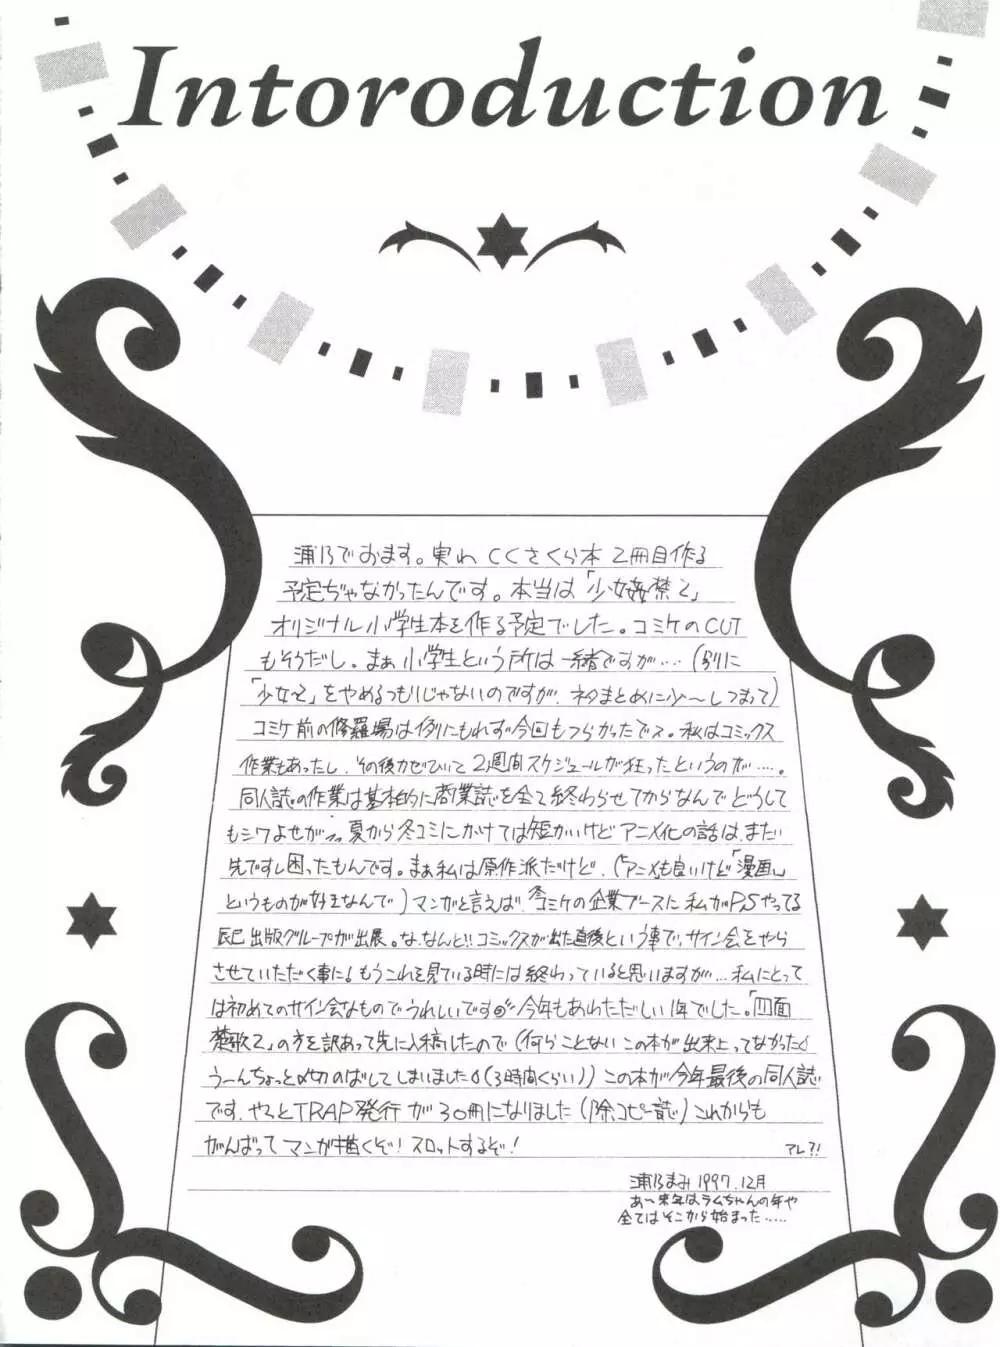 Intoroduction
浦乃でおます。実わCCさくら本2冊目作る
予定ぢゃなかったんです。本当は「少女姦禁2」
オリジナル小学生本を作る予定でした。コミケのCUT
もそうだし。まぁ小学生という所は一緒ですが…(別に
「少女2」をやめるつもりじゃないのですが、ネタまとめに少〜しつまって)
コミケ前の修羅場は例にもれず今回もつらかったでス。私はコミックス
作業もあったし、その後カゼひいて2週間スケジュールが狂ったというのが…。
同人誌の作業は基本的に商業誌を全て終わらせてからなんでどうして
もシワよせが 夏から冬コミにかけては短かいけどアニメ化の話はまだ
先ですし困ったもんです。まぁ私は原作派だけど、(「アニメも良いけど「漫画」
というものが好きなんで)マンガと言えば、冬コミケの企業ブースに私がP,Sやってる
辰巳出版グループが出展。な、なんと!!コミックスが出た直後という事で、サイン会をやら
させていただく事に!もうこれを見ている時には終わっていると思いますが…私にとって
は初めてのサイン会なものでうれしいです 今年もあわただしい1年でした。「四面
楚歌2」の方を訳あって先に入稿したので(何らことないこの本が出来上ってなかった
う〜んちょっと〆切のばしてしまいました(3時間くらい))この本が今年最後の同人誌
です、やっとTRAP発行が30冊になりました(除コピー誌)これからも
がんばってマンガ描くぞ!スロットするぞ!
アレ?!
浦乃まみ 1997.12月
あ〜来年はラムちゃんの年や
全てはそこから始まった……